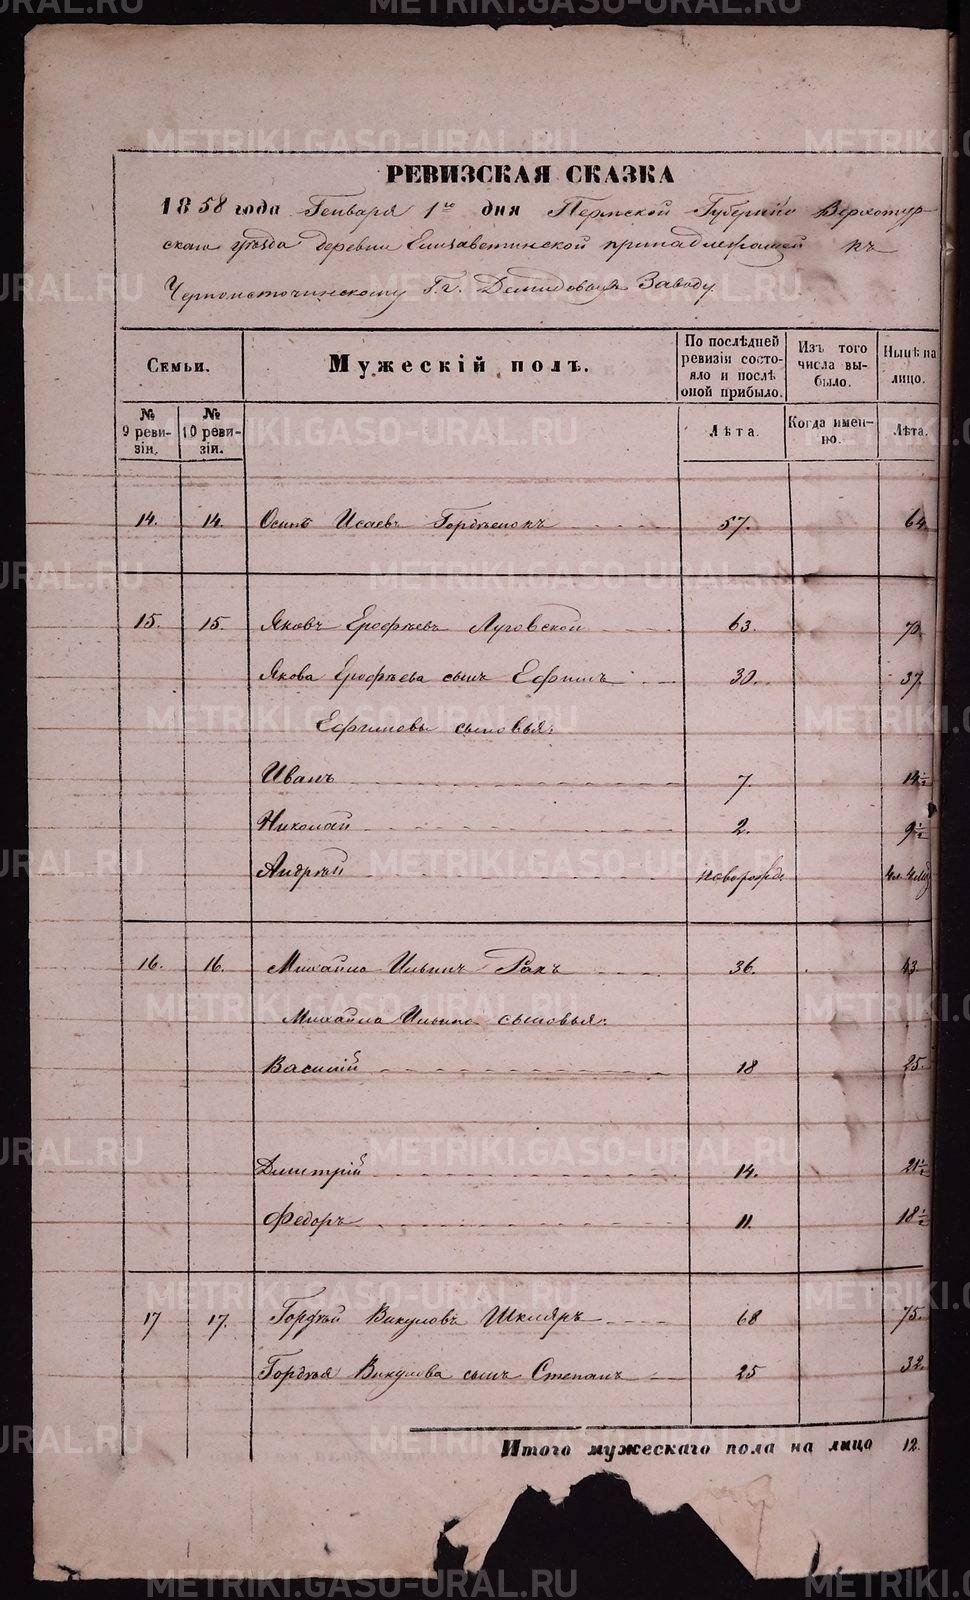 РЕВИЗСКАЯ СКАЗКА
1858 года Генваря 1го дня Пермской Губернiи Верхотур-
скаго уѣзда деревни Елизаветинской принадлежащей къ
Черноисточинскому Г.г. Демидовыхъ Заводу.
Семьи.
Мужескiй полъ.
По послѣдней ревизiи состо-яло и послѣ оной прибыло.
Изъ того числа вы-было.
Нынѣ на лицо.
№ 9 реви-зiи.
№ 10 реви-зiи.
Лѣта.
Когда имен-но.
Лѣта.
14. 14. Осипъ Исаевъ Гордѣенокъ 57. 64
15. 15. Яковъ Ерофѣевъ Луговской 63. 70
Якова Ерофѣева сынъ Ефимъ 30. 37
Ефимовы сыновья:
Иванъ 7. 14½
Николай 2. 9½
Андрѣй новорожд.
16. 16. Михайло Ильинъ Ракъ 36. 43
Михайла Ильина сыновья:
Василiй 18 25.
Дмитрiй 14. 21½
Федоръ 11. 18½
17 17. Гордѣй Викуловъ Шкляръ 68 75.
Гордѣя Викулова сынъ Степанъ 25 32.
Итого мужескаго пола на лицо 12.
METRIKI.GASO-URAL.RU